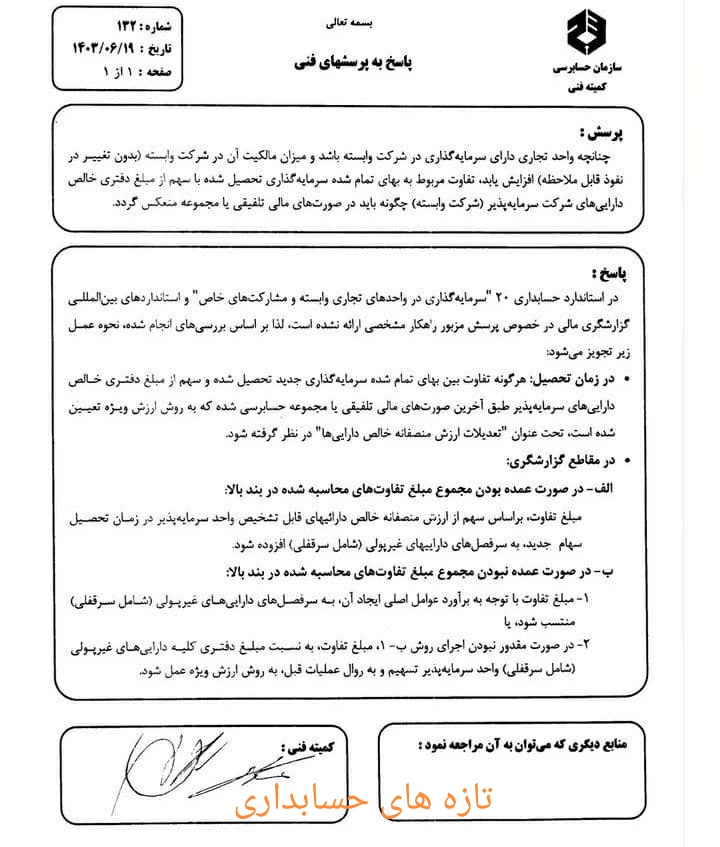 بسمه تعالی
پاسخ به پرسشهای فنی
شماره : ۱۳۲
تاریخ : ۱۴۰۳/۰۶/۱۹
صفحه : ۱ از ۱
سازمان حسابرسی
کمیته فنی
پرسش :
چنانچه واحد تجاری دارای سرمایه‌گذاری در شرکت وابسته باشد و میزان مالکیت آن در شرکت وابسته (بدون تغییر در
نفوذ قابل ملاحظه) افزایش یابد، تفاوت مربوط به بهای تمام شده سرمایه‌گذاری تحصیل شده با سهم از مبلغ دفتری خالص
دارایی‌های شرکت سرمایه‌پذیر (شرکت وابسته) چگونه باید در صورت‌های مالی تلفیقی یا مجموعه منعکس گردد.
پاسخ :
در استاندارد حسابداری ۲۰ "سرمایه‌گذاری در واحدهای تجاری وابسته و مشارکت‌های خاص" و استانداردهای بین‌المللی
گزارشگری مالی در خصوص پرسش مزبور راهکار مشخصی ارائه نشده است، لذا بر اساس بررسی‌های انجام شده، نحوه عمل
زیر تجویز می‌شود:
• در زمان تحصیل: هرگونه تفاوت بین بهای تمام شده سرمایه‌گذاری جدید تحصیل شده و سهم از مبلغ دفتری خالص
دارایی‌های سرمایه‌پذیر طبق آخرین صورت‌های مالی تلفیقی یا مجموعه حسابرسی شده که به روش ارزش ویژه تعیین
شده است، تحت عنوان "تعدیلات ارزش منصفانه خالص دارایی‌ها" در نظر گرفته شود.
• در مقاطع گزارشگری:
الف- در صورت عمده بودن مجموع مبلغ تفاوت‌های محاسبه شده در بند بالا:
مبلغ تفاوت، براساس سهم از ارزش منصفانه خالص دارائیهای قابل تشخیص واحد سرمایه‌پذیر در زمان تحصیل
سهام جدید، به سرفصل‌های داراییهای غیرپولی (شامل سرقفلی) افزوده شود.
ب- در صورت عمده نبودن مجموع مبلغ تفاوت‌های محاسبه شده در بند بالا:
۱- مبلغ تفاوت با توجه به برآورد عوامل اصلی ایجاد آن، به سرفصل‌های دارایی‌های غیرپولی (شامل سرقفلی)
منتسب شود، یا
۲- در صورت مقدور نبودن اجرای روش ب-۱، مبلغ تفاوت، به نسبت مبلغ دفتری کلیه دارایی‌های غیرپولی
(شامل سرقفلی) واحد سرمایه‌پذیر تسهیم و به روال عملیات قبل، به روش ارزش ویژه عمل شود.
منابع دیگری که می‌توان به آن مراجعه نمود :
کمیته فنی :
تازه های حسابداری